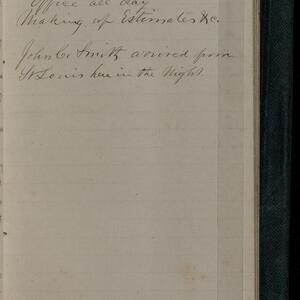 Office all day
Making up Estimates &c.
John C. Smith arived from
St Louis here in the Night.